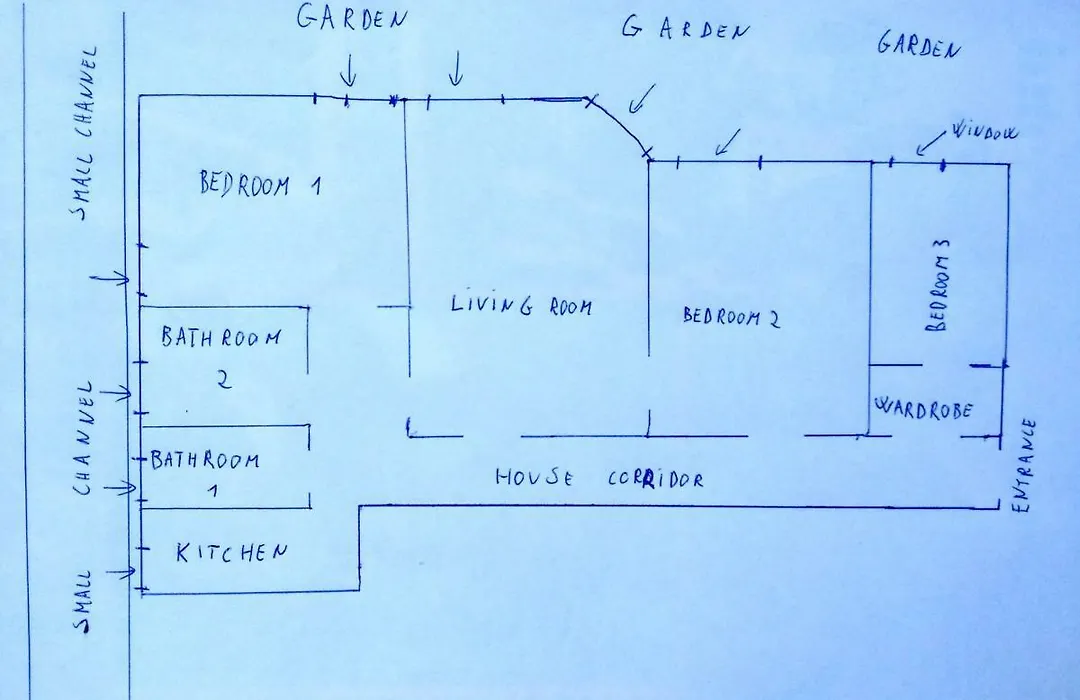 GARDEN
GARDEN
GARDEN
SMALL CHANNEL
WINDOW
BEDROOM 1
LIVING ROOM
BEDROOM 2
BEDROOM 3
BATHROOM
2
WARDROBE
SMALL CHANNEL
BATHROOM
1
HOUSE CORRIDOR
ENTRANCE
KITCHEN